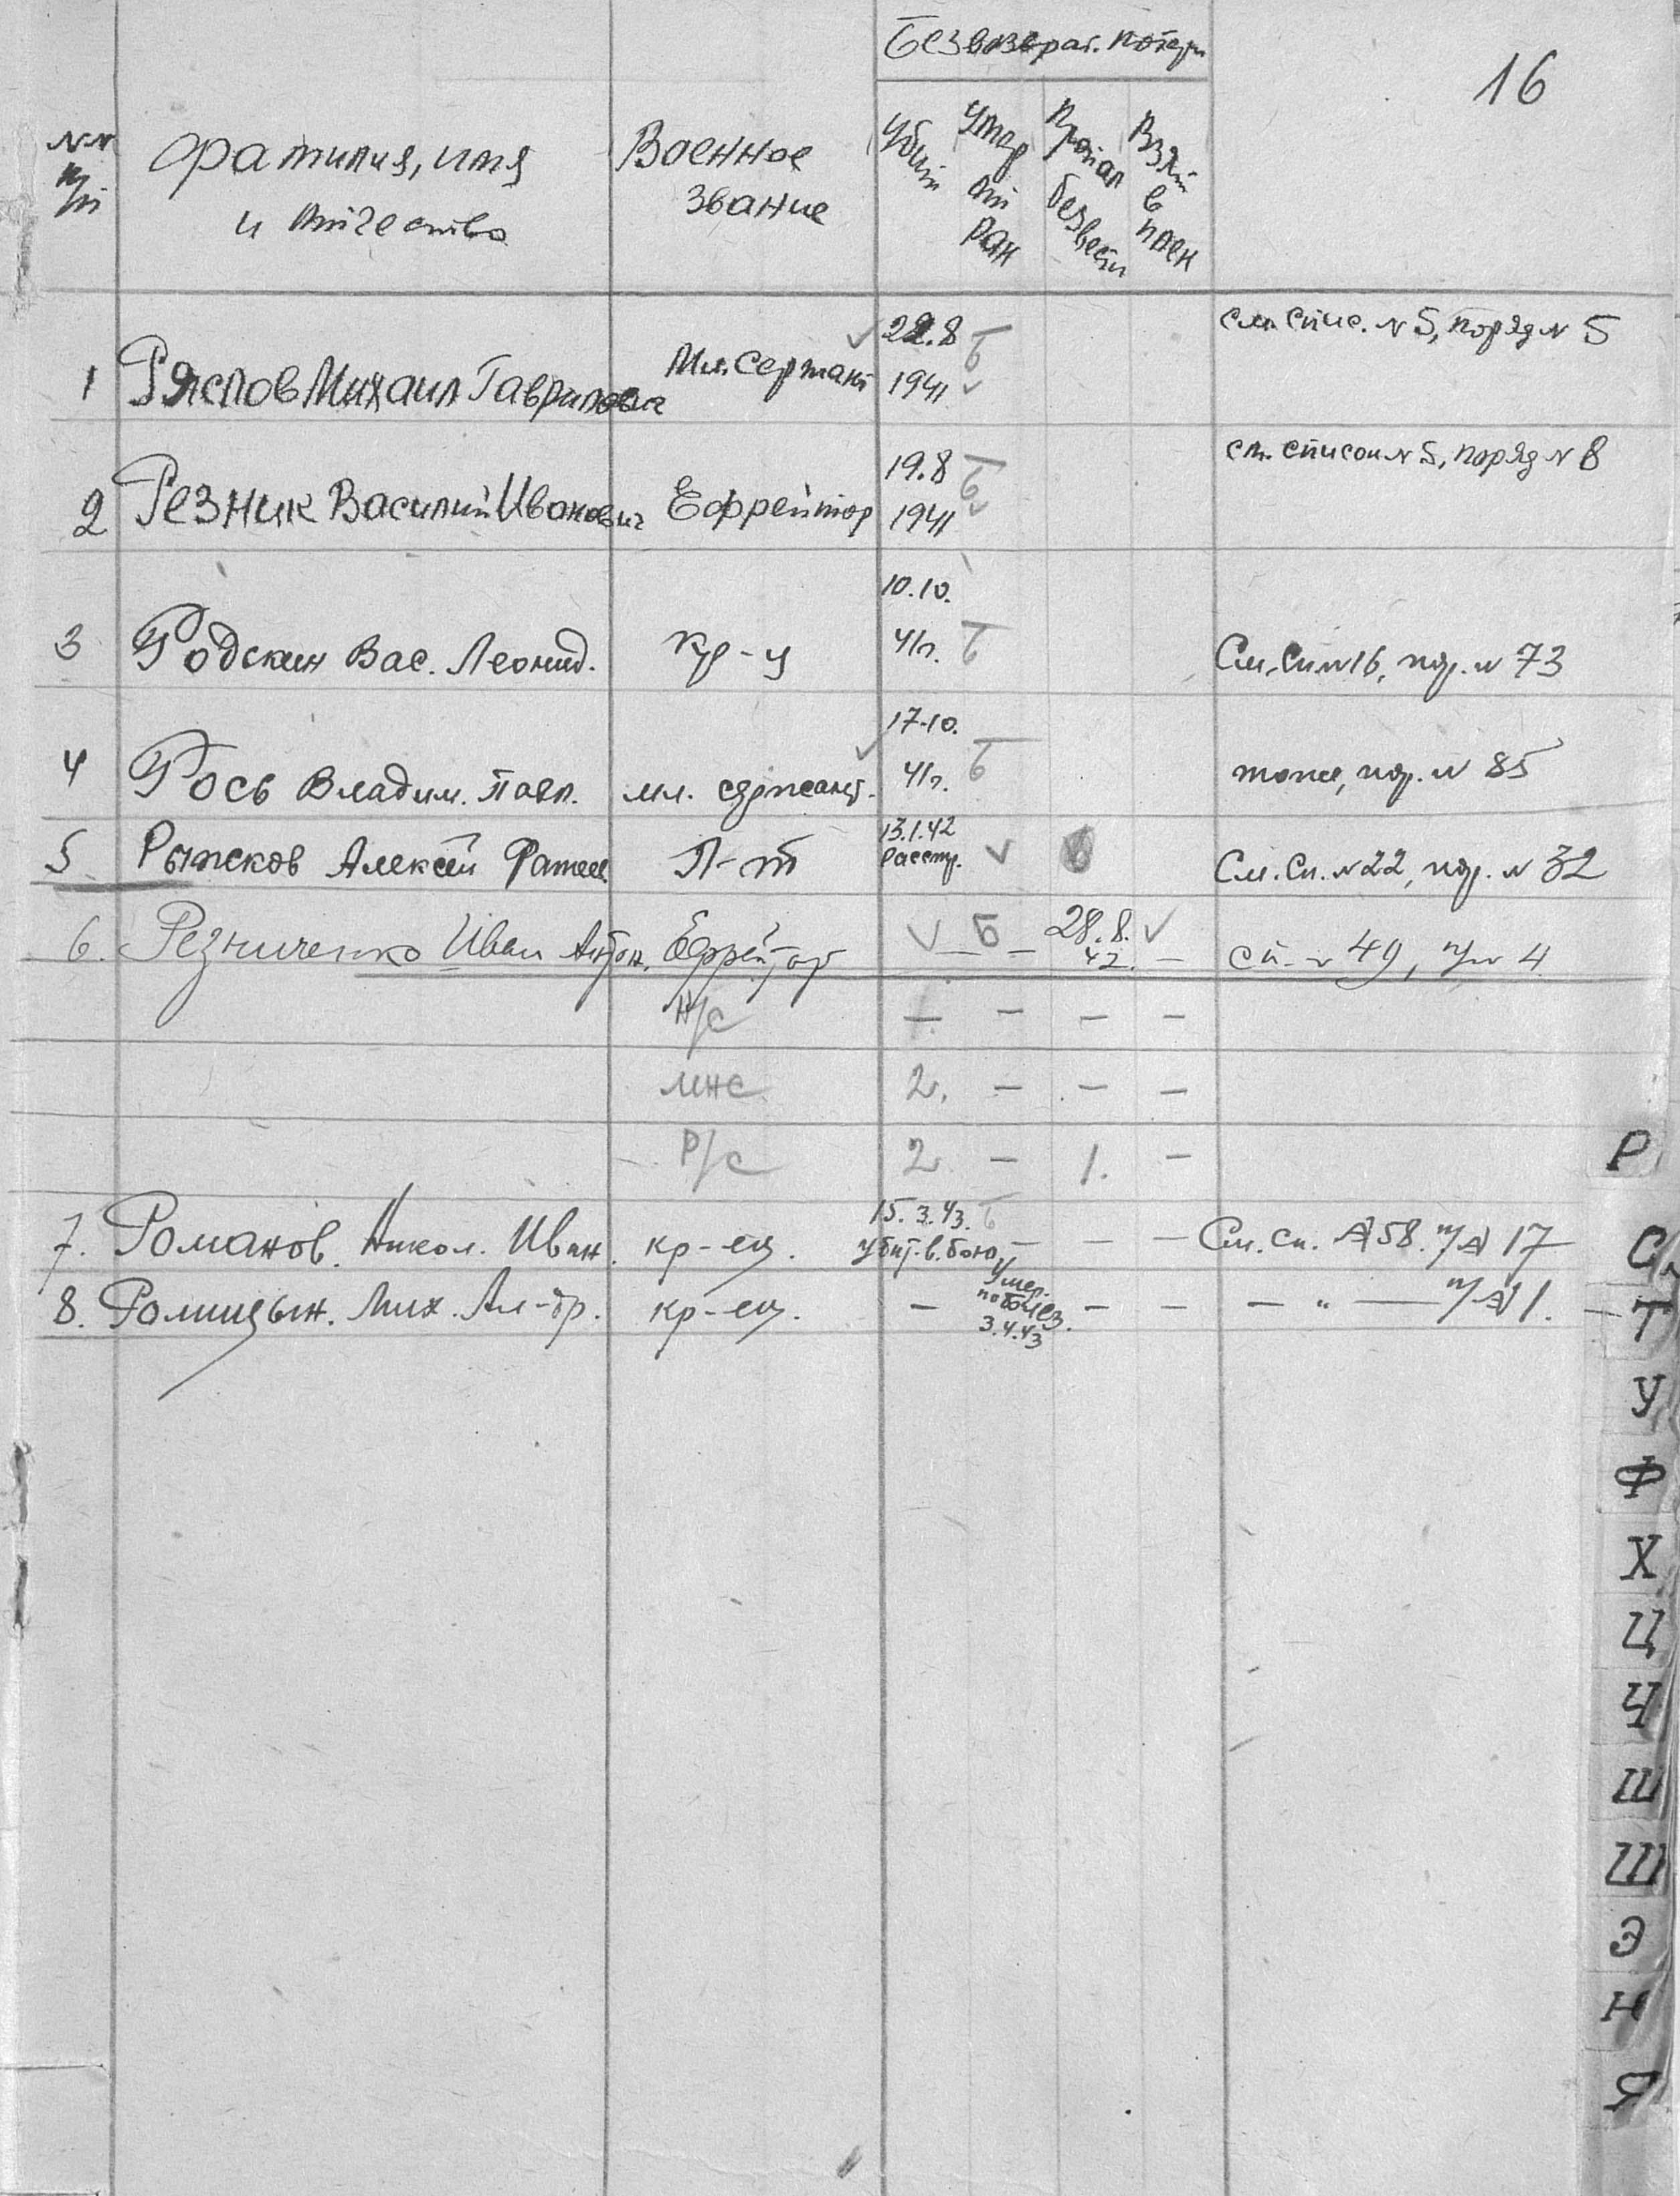 16
Безвозврат. потери
NN п/п
фамилия, имя
и отчество
Военное
звание
Убит
Умер от ран
Пропал безвести
Взят в плен
1 Михаил Гаврилович Мл. Сержант 8 1941 Б см. спис. N 5, поряд N 5
2 Резник Василий Иванович Ефрейтор 19.8 1941 Б см. список N 5, поряд N 8
3 Родскин Вас. Леонид. кр-ц 10.10. 41г. Б См. сп. N 16, пор. N 73
4 Рось Владим. Павл. мл. сержант. 17.10. 41г. Б тоже, пор. N 85
5 Рыжков Алексей Л-т 13.1.42 Расстр. См. Сп. N 22, пор. N 32
6. Резниченко Иван Антон. Ефрейтор — Б — 28.8.42. — сп. N 49, п/N 4
Н/С — — — —
МНС 2. — — —
Р/С 2 — 1. —
7. Романов. Никол. Иван. кр-ец. 15.3.43. Б убит. в. бою — — — См. сп. N 58. п/N 17
8. Мих. Ал-др. кр-ец. — Умер. по болез. 3.4.43 — — — " — п/N 1.
Р
С
Т
У
Ф
Х
Ц
Ч
Ш
Щ
Э
Я